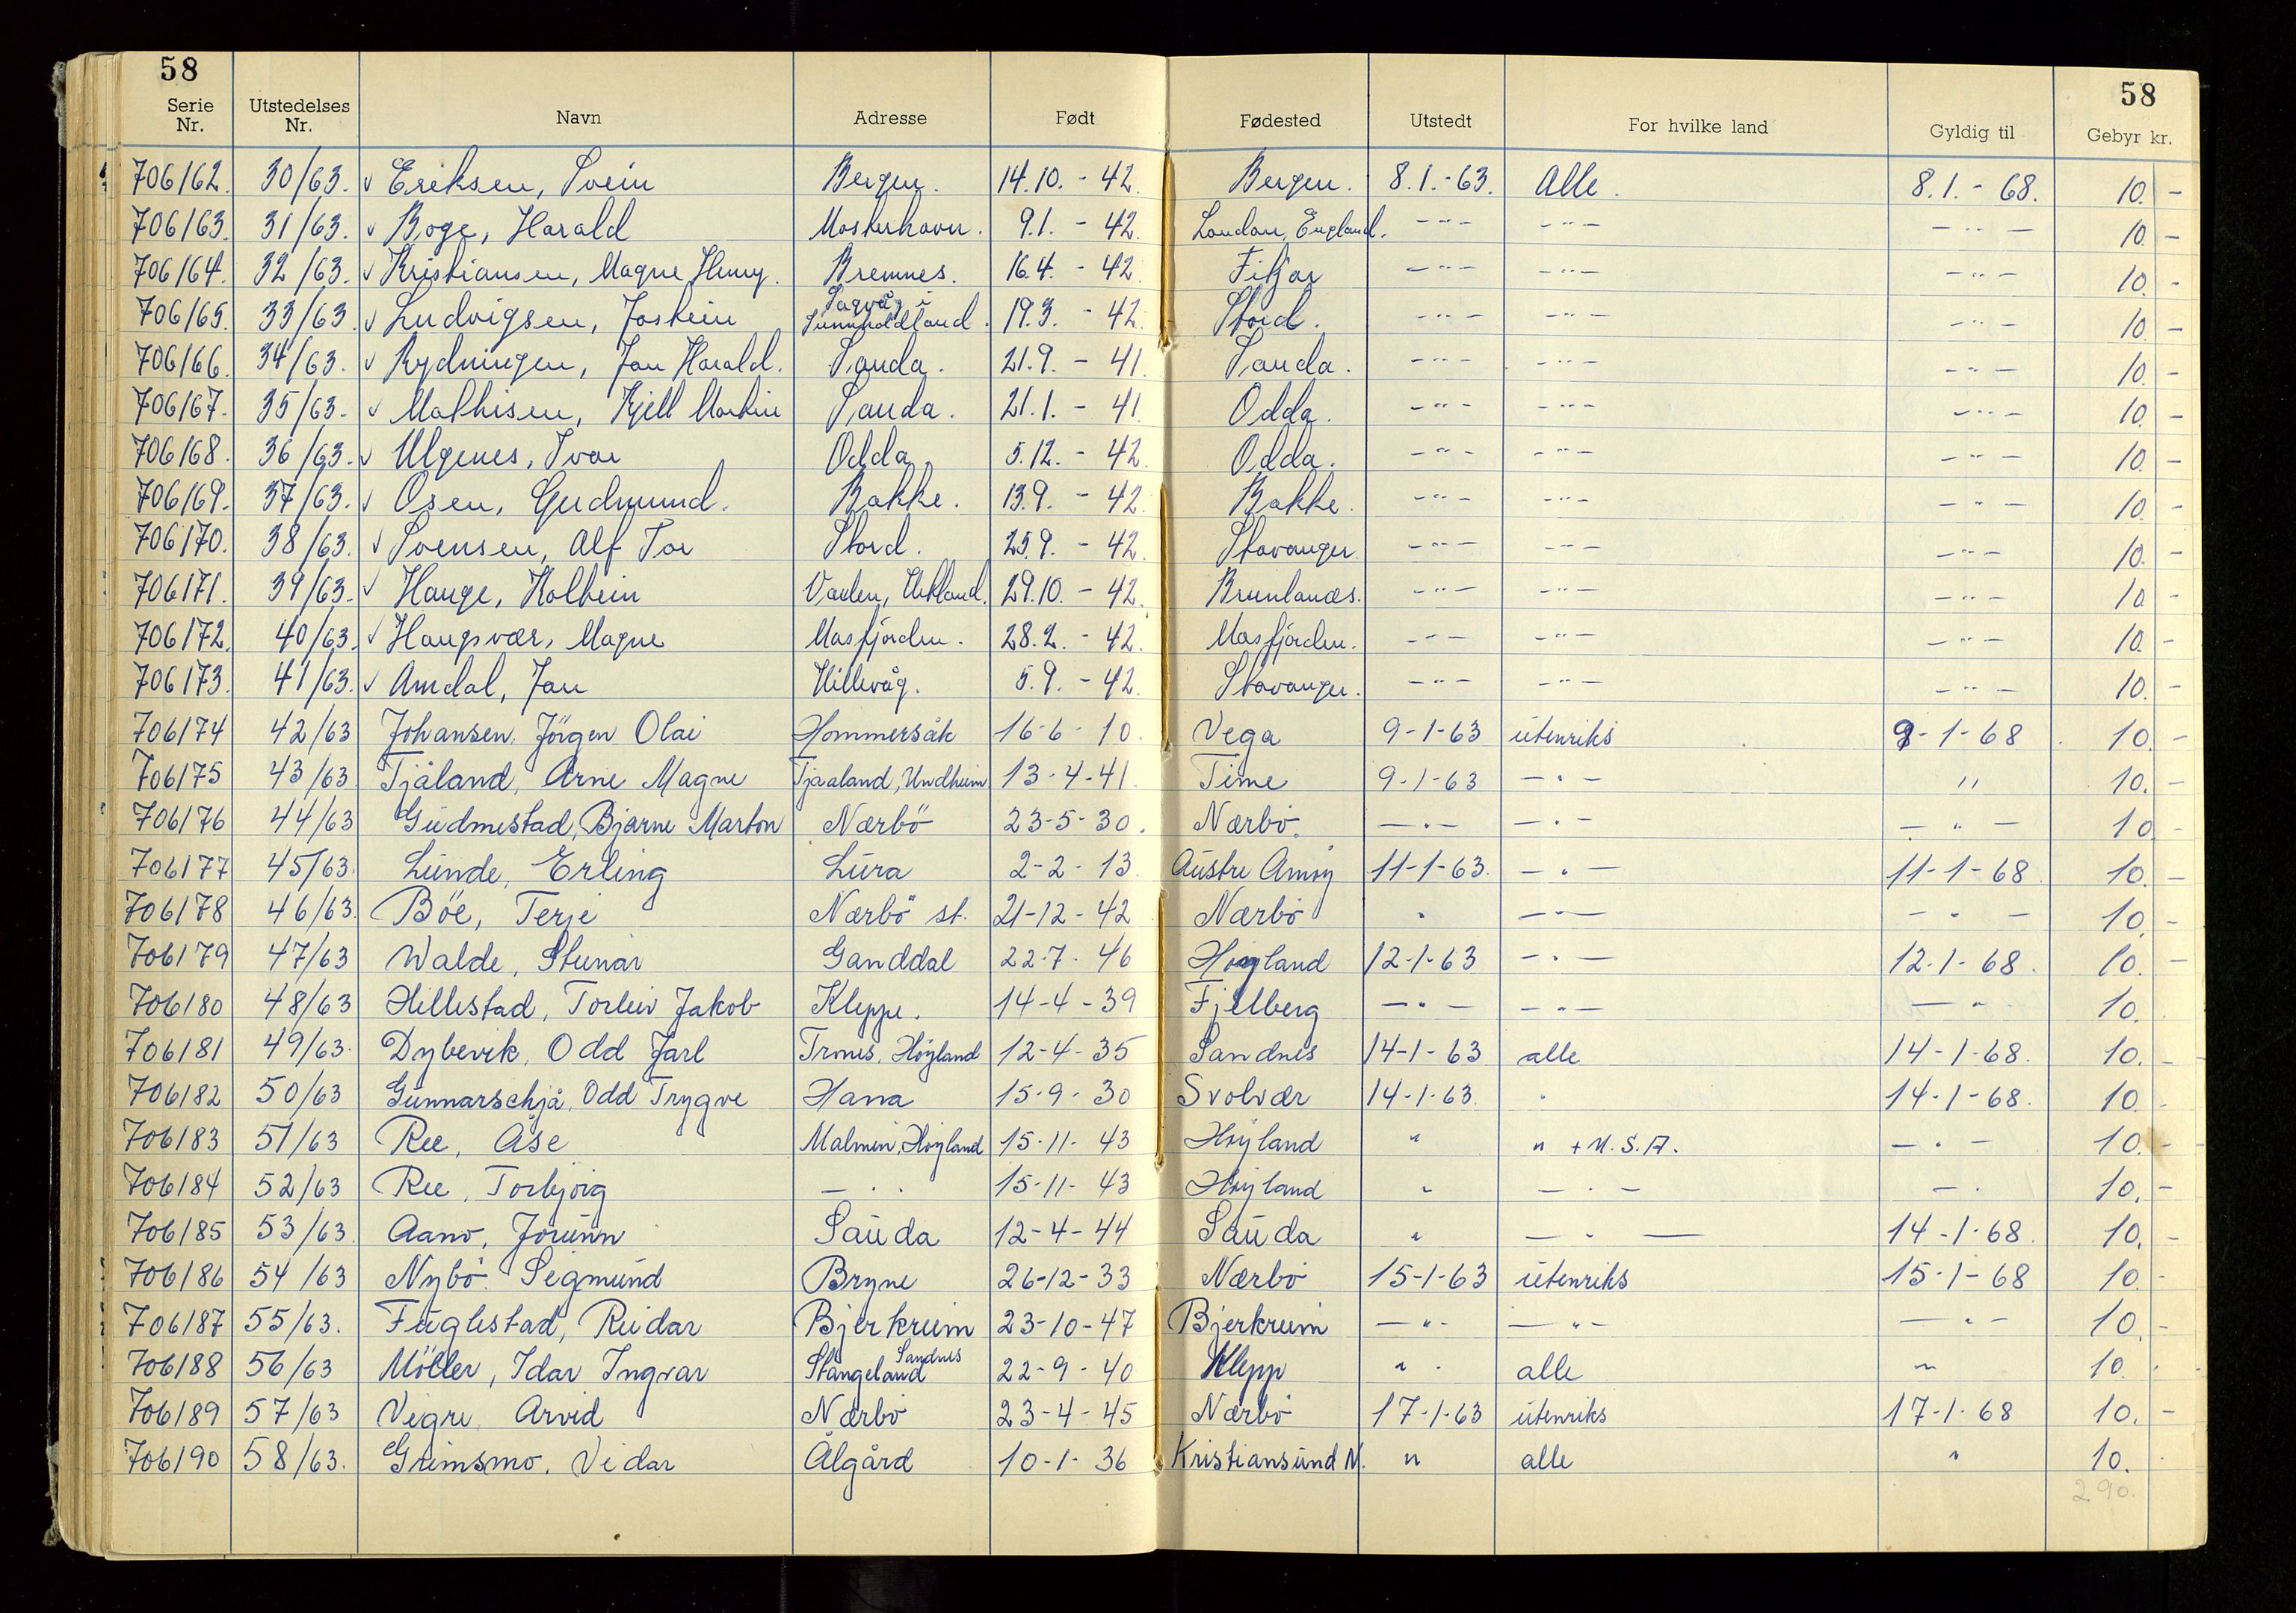 58 58
Serie Nr. Utstedelses Nr. Navn Adresse Født Fødested Utstedt For hvilke land Gyldig til Gebyr kr.
706162. 30/63. √ Eriksen, Svein Bergen. 14.10. - 42. Bergen. 8.1.-63. Alle. 8.1. - 68. 10. -
706163. 31/63. √ Boge, Harald Mosterhavn. 9.1. - 42. London, England. -"- -"- -"- 10. -
706164. 32/63. √ Kristiansen, Magne Henry. Bremnes. 16.4. - 42. Fitjar -"- -"- -"- 10. -
706165. 33/63. √ Ludvigsen, Jostein Sagvåg i Sunnhordland. 19.3. - 42. Stord. -"- -"- -"- 10. -
706166. 34/63. √ Rydningen, Jan Harald. Sauda. 21.9. - 41. Sauda. -"- -"- -"- 10. -
706167. 35/63. √ Mathisen, Kjell Martin Sauda. 21.1. - 41. Odda. -"- -"- -"- 10. -
706168. 36/63. √ Ulgenes, Ivar Odda. 5.12. - 42. Odda. -"- -"- -"- 10. -
706169. 37/63. √ Osen, Gudmund. Bakke. 13.9. - 42. Bakke. -"- -"- -"- 10. -
706170. 38/63. √ Svensen, Alf Tor Stord. 25.9. - 42. Stavanger. -"- -"- -"- 10. -
706171. 39/63. √ Hauge, Kolbein Vaulen, Hetland. 29.10. - 42. Brunlanes. -"- -"- -"- 10. -
706172. 40/63. √ Haugsvær, Magne Masfjorden. 28.2. - 42. Masfjorden. -"- -"- -"- 10. -
706173. 41/63. √ Amdal, Jan Hillevåg. 5.9. - 42. Stavanger. -"- -"- -"- 10. -
706174 42/63 Johansen, Jörgen Olai Hommersåk 16-6-10. Vega 9-1-63 utenriks 9-1-68 10. -
706175 43/63 Tjåland, Arne Magne Tjaaland, Undheim 13-4-41. Time 9-1-63 -"- " 10. -
706176 44/63 Gudmestad, Bjarne Marton Nærbö 23-5-30. Nærbö. -"- -"- -"- 10. -
706177 45/63 Lunde, Erling Lura 2-2-13. Austre Amöy 11-1-63. -"- 11-1-68 10. -
706178 46/63. Böe, Terje Nærbö st. 21-12-42 Nærbö " -"- -"- 10. -
706179 47/63 Walde, Steinar Ganddal 22-7-46 Höyland 12-1-63 -"- 12-1-68. 10. -
706180 48/63 Hillestad, Torleiv Jakob Kleppe. 14-4-39 Fjelberg -"- -"- -"- 10.
706181 49/63. Dybevik, Odd Jarl Trones, Höyland 12-4-35 Sandnes 14-1-63 alle 14-1-68. 10. -
706182 50/63 Gunnarschjå, Odd Trygve Hana 15-9-30 Svolvær 14-1-63. " 14-1-68. 10. -
706183 51/63 Ree, Åse Malmein, Höyland 15-11-43 Höyland " " + U.S.A. -"- 10. -
706184 52/63 Ree, Torbjörg -"- 15-11-43 Höyland " -"- -"- 10. -
706185 53/63 Aanö, Jorunn Sauda 12-4-44 Sauda " -"- 14-1-68. 10. -
706186 54/63 Nybö Sigmund Bryne 26-12-33 Nærbö 15-1-63 utenriks 15-1-68 10. -
706187 55/63. Fuglestad, Reidar Bjerkreim 23-10-47 Bjerkreim -"- -"- -"- 10. -
706188 56/63 Möller, Idar Ingvar Stangeland Sandnes 22-9-40 Klepp " alle " 10. -
706189 57/63 Vigre, Arvid Nærbö 23-4-45 Nærbö 17-1-63 utenriks 17-1-68 10. -
706190 58/63. Grimsmo, Vidar Ålgård 10-1-36 Kristiansund N. " alle " 10. -
290.